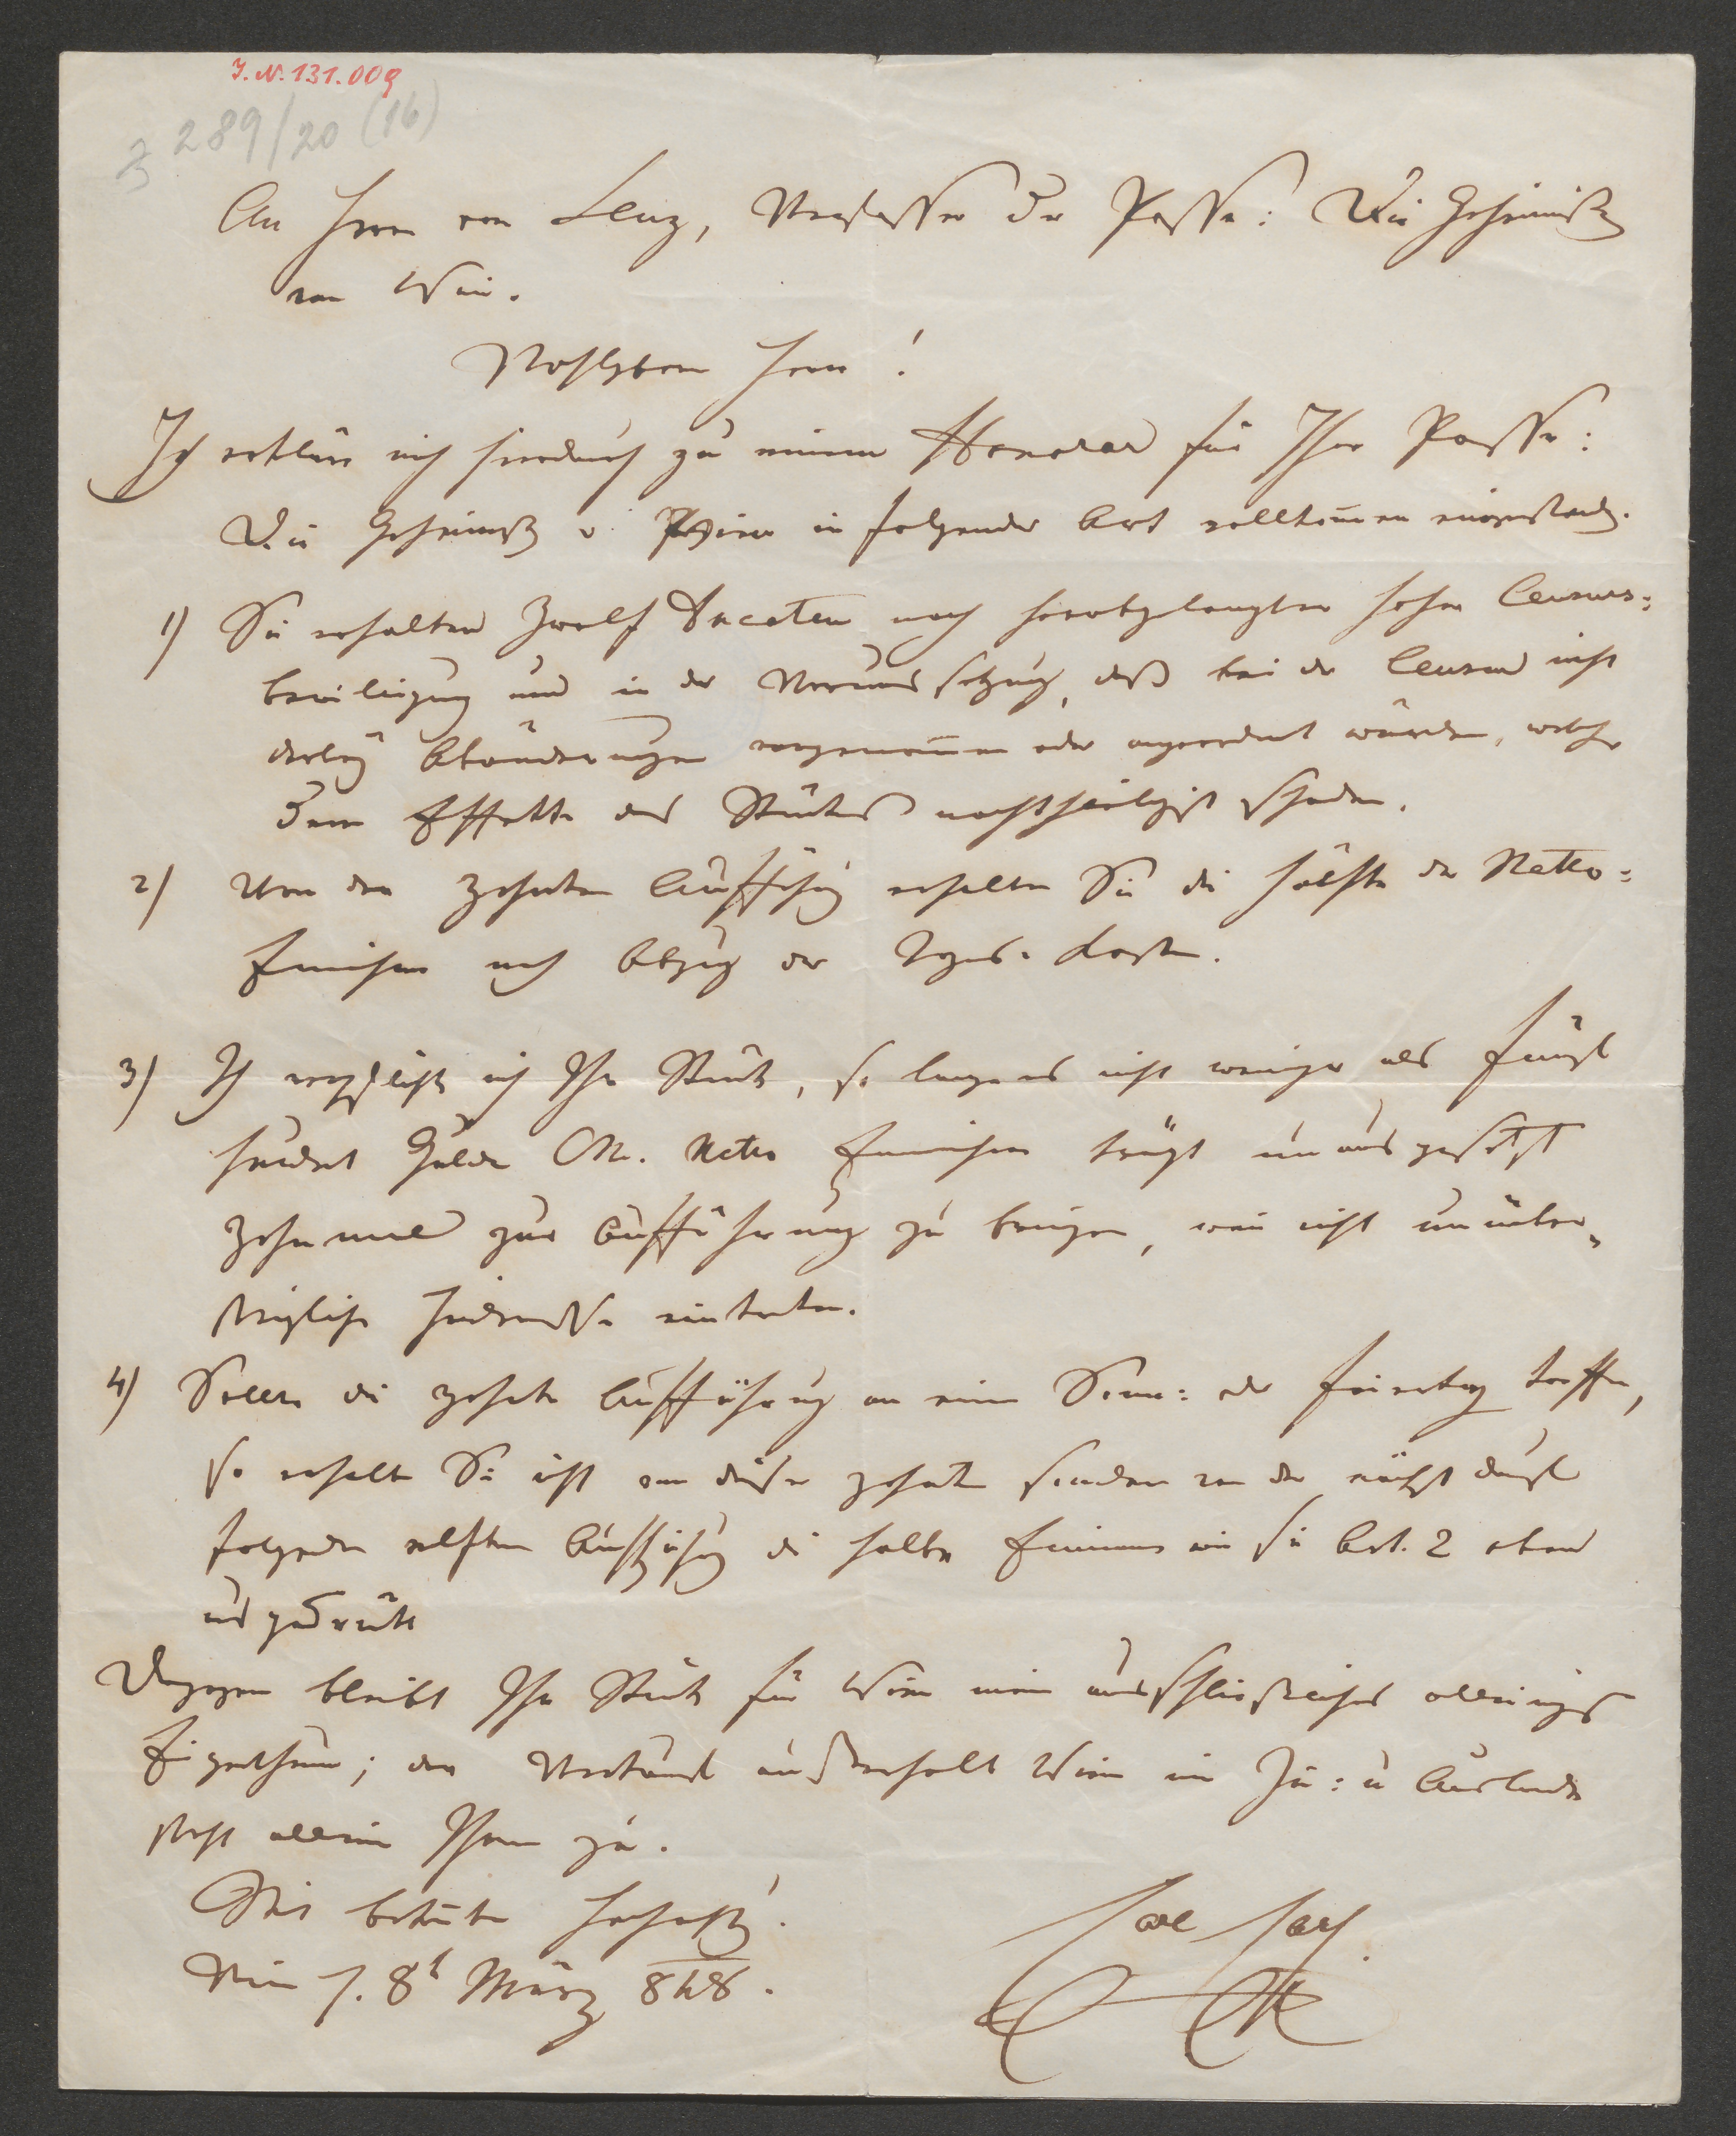 J. N. 131.009
289/20 (16)
An Herrn von Lenz, Verfasser der Posse: Die Geheimniße
von Wien.
Wohlgeborner Herr!
Ich erkläre mich hierdurch zu einem Honorar für Ihre Posse:
Die Geheimniße v. Wien in folgender Art vollkomen einverstanden.
1) Sie erhalten zwölf Ducaten nach herabgelangter hoher Censurs=
bewilligung und in der Voraussetzung, daß bei der Censur nicht
derley Abänderungen vorgenomen oder angeordnet würden, welche
dem Effekte des Stückes nachtheiligst schaden.
2) Von der zehnten Aufführung erhalten Sie die Hälfte der Netto=
Einnahme nach Abzug der Tages-Kosten.
3) Ich verpflichte mich Ihr Stück, so lange es nicht weniger als fünf
hundert Gulden CM. Netto Einnahme trägt unausgesetzt
zehnmal zur Aufführung zu bringen, wenn nicht unüber=
steigliche Hinderniße eintreten.
4) Sollte die zehnte Aufführung an einem Sonn= oder Feiertag treffen,
so erhalten Sie nicht von dieser zehnten sondern von der nächst darauf
folgenden elften Aufführung die halbe Einnahme wie sie Art. 2 oben
ausgedrückt
Dagegen bleibt Ihr Stück für Wien mein ausschließliches alleiniges
Eigenthum; der Verkauf außerhalb Wien im In= u Auslande
steht allein Ihnen zu.
Mit Hochachtung.
Wien 8t März 848.
Carl